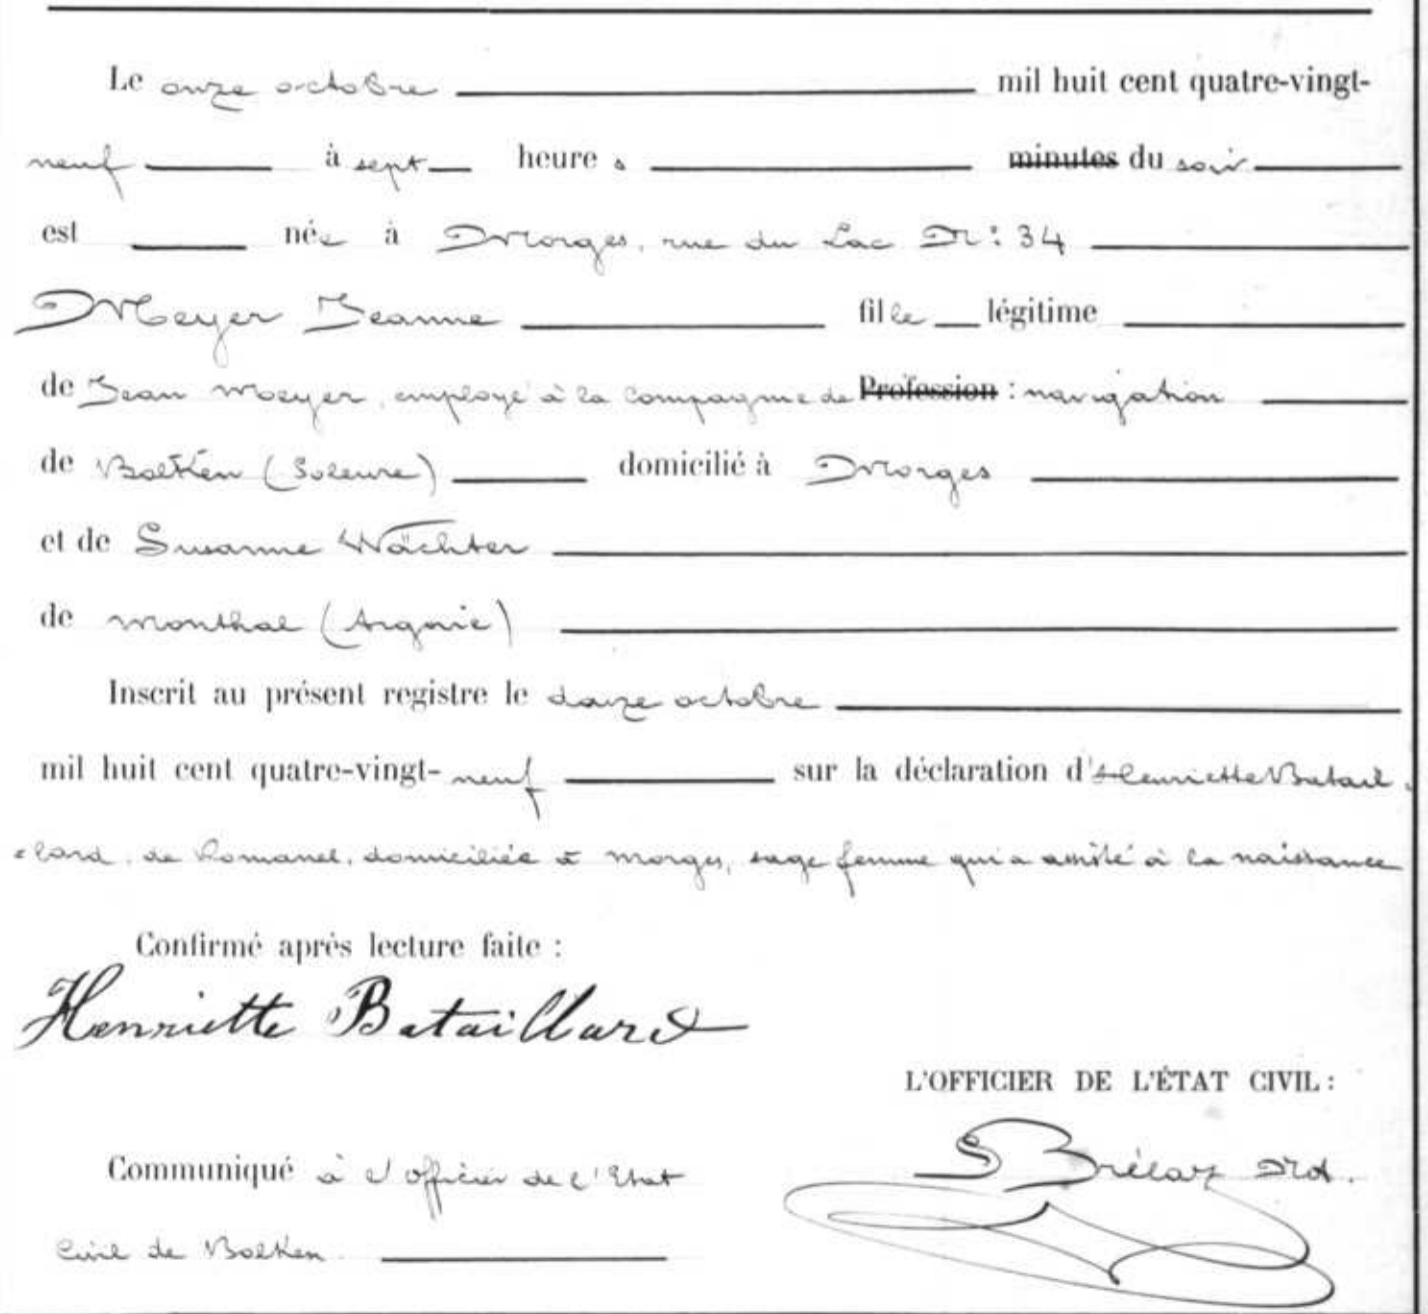 Le onze octobre mil huit cent quatre-vingt-
neuf à sept heures minutes du soir
est née à Morges, rue du Lac N: 34
Meyer Jeanne fille légitime
de Jean Meyer, employé à la compagnie de Profession : navigation
de Bolken (Soleure) domicilié à Morges
et de Susanne Wächter
de Monthal (Argovie)
Inscrit au présent registre le douze octobre
mil huit cent quatre-vingt-neuf sur la déclaration d'Henriette Batail-
lard, de Romanel, domiciliée à Morges, sage femme qui a assisté à la naissance
Confirmé après lecture faite :
Henriette Bataillard
L'OFFICIER DE L'ÉTAT CIVIL :
Communiqué à l'officier de l'Etat
Civil de Bolken.
S Brélaz